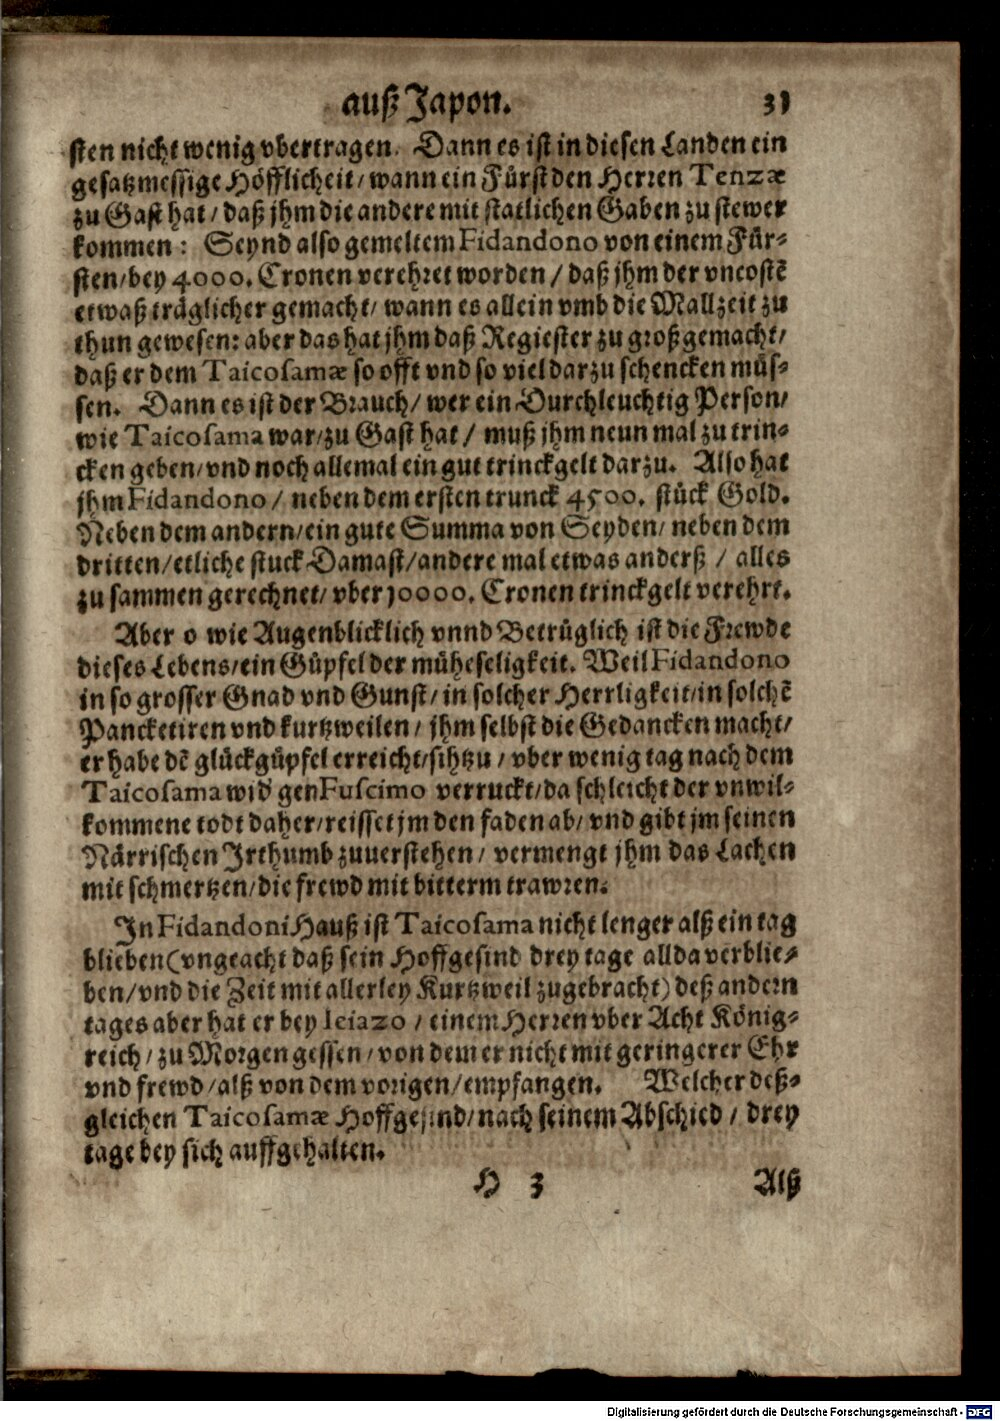 auß Japon. 31
sten nicht wenig vbertragen. Dann es ist in diesen Landen ein
gesatzmessige Höfflicheit/ wann ein Fürst den Herren Tenzæ
zu Gast hat/ daß jhm die andere mit statlichen Gaben zu stewer
kommen: Seynd also gemeltem Fidandono von einem Für-
sten/ bey 4000. Cronen verehret worden/ daß jhm der vncostē
etwaß träglicher gemacht/ wann es allein vmb die Mallzeit zu
thun gewesen: aber das hat jhm daß Regiester zu groß gemacht/
daß er dem Taicosamæ so offt vnd so viel darzu schencken müs-
sen. Dann es ist der Brauch/ wer ein Durchleuchtig Person/
wie Taicosama war/ zu Gast hat/ muß jhm neun mal zu trin-
cken geben/ vnd noch allemal ein gut trinckgelt darzu. Also hat
jhm Fidandono/ neben dem ersten trunck 4500. stück Gold.
Neben dem andern/ ein gute Summa von Seyden/ neben dem
dritten/ etliche stuck Damast/ andere mal etwas anderß/ alles
zu sammen gerechnet/ vber 10000. Cronen trinckgelt verehrt.
Aber o wie Augenblicklich vnnd Betrüglich ist die Frewde
dieses Lebens/ ein Güpfel der müheseligkeit. Weil Fidandono
in so grosser Gnad vnd Gunst/ in solcher Herrligkeit/ in solchē
Pancketiren vnd kurtzweilen/ jhm selbst die Gedancken macht/
er habe dē glückgüpfel erreicht/ sihtzu/ vber wenig tag nach dem
Taicosama wid' gen Fuscimo verruckt/ da schleicht der vnwil-
kommene todt daher/ reisset jm den faden ab/ vnd gibt jm seinen
Närrischen Irthumb zuuerstehen/ vermengt jhm das Lachen
mit schmertzen/ die frewd mit bitterm trawren.
In Fidandoni Hauß ist Taicosama nicht lenger alß ein tag
blieben (vngeacht daß sein Hoffgesind drey tage allda verblie-
ben/ vnd die Zeit mit allerley Kurtzweil zugebracht) deß andern
tages aber hat er bey Ieiazo/ einem Herren vber Acht König-
reich/ zu Morgen gessen/ von dem er nicht mit geringerer Ehr
vnd frewd/ alß von dem vorigen/ empfangen. Welcher deß-
gleichen Taicosamæ Hoffgesind/ nach seinem Abschied/ drey
tage bey sich auffgehalten.
H 3 Alß
Digitalisierung gefördert durch die Deutsche Forschungsgemeinschaft - DFG